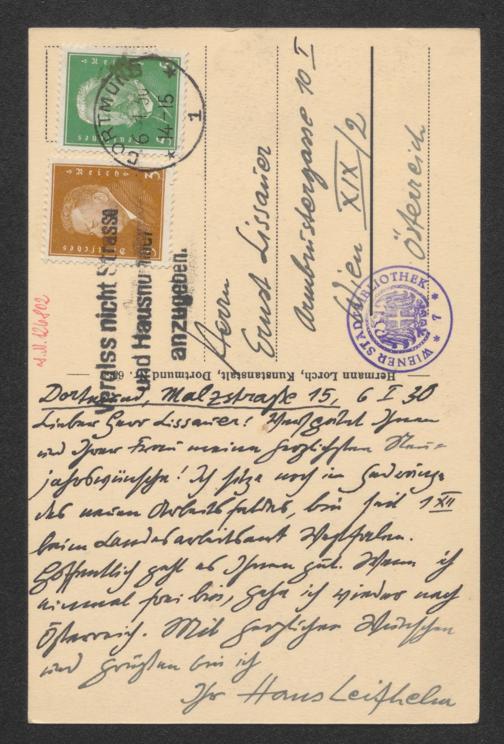 DORTMUND 1
6.1.30
14-15
5
Deutsches Reich
3
Deutsches Reich
Vergiss nicht Strasse
und Hausnummer
anzugeben.
Herrn
Ernst Lissauer
Armbrustergasse 10 I
Wien XIX/2
Österreich
WIENER STADTBIBLIOTHEK * 7 *
Hermann Lorch, Kunstanstalt, Dortmund.
Dortmund, Malzstraße 15, 6 I 30
Lieber Herr Lissauer! Ihnen
und Ihrer Frau meine herzlichsten Neu-
jahrswünsche! Ich sitze noch im Gedränge
des neuen Arbeitsfeldes, bin seit 1 XII
beim Landesarbeitsamt Westfalen.
Hoffentlich geht es Ihnen gut. Wenn ich
einmal frei bin, gehe ich wieder nach
Österreich. Mit herzlichen Wünschen
und Grüßen bin ich
Ihr Hans Leifhelm